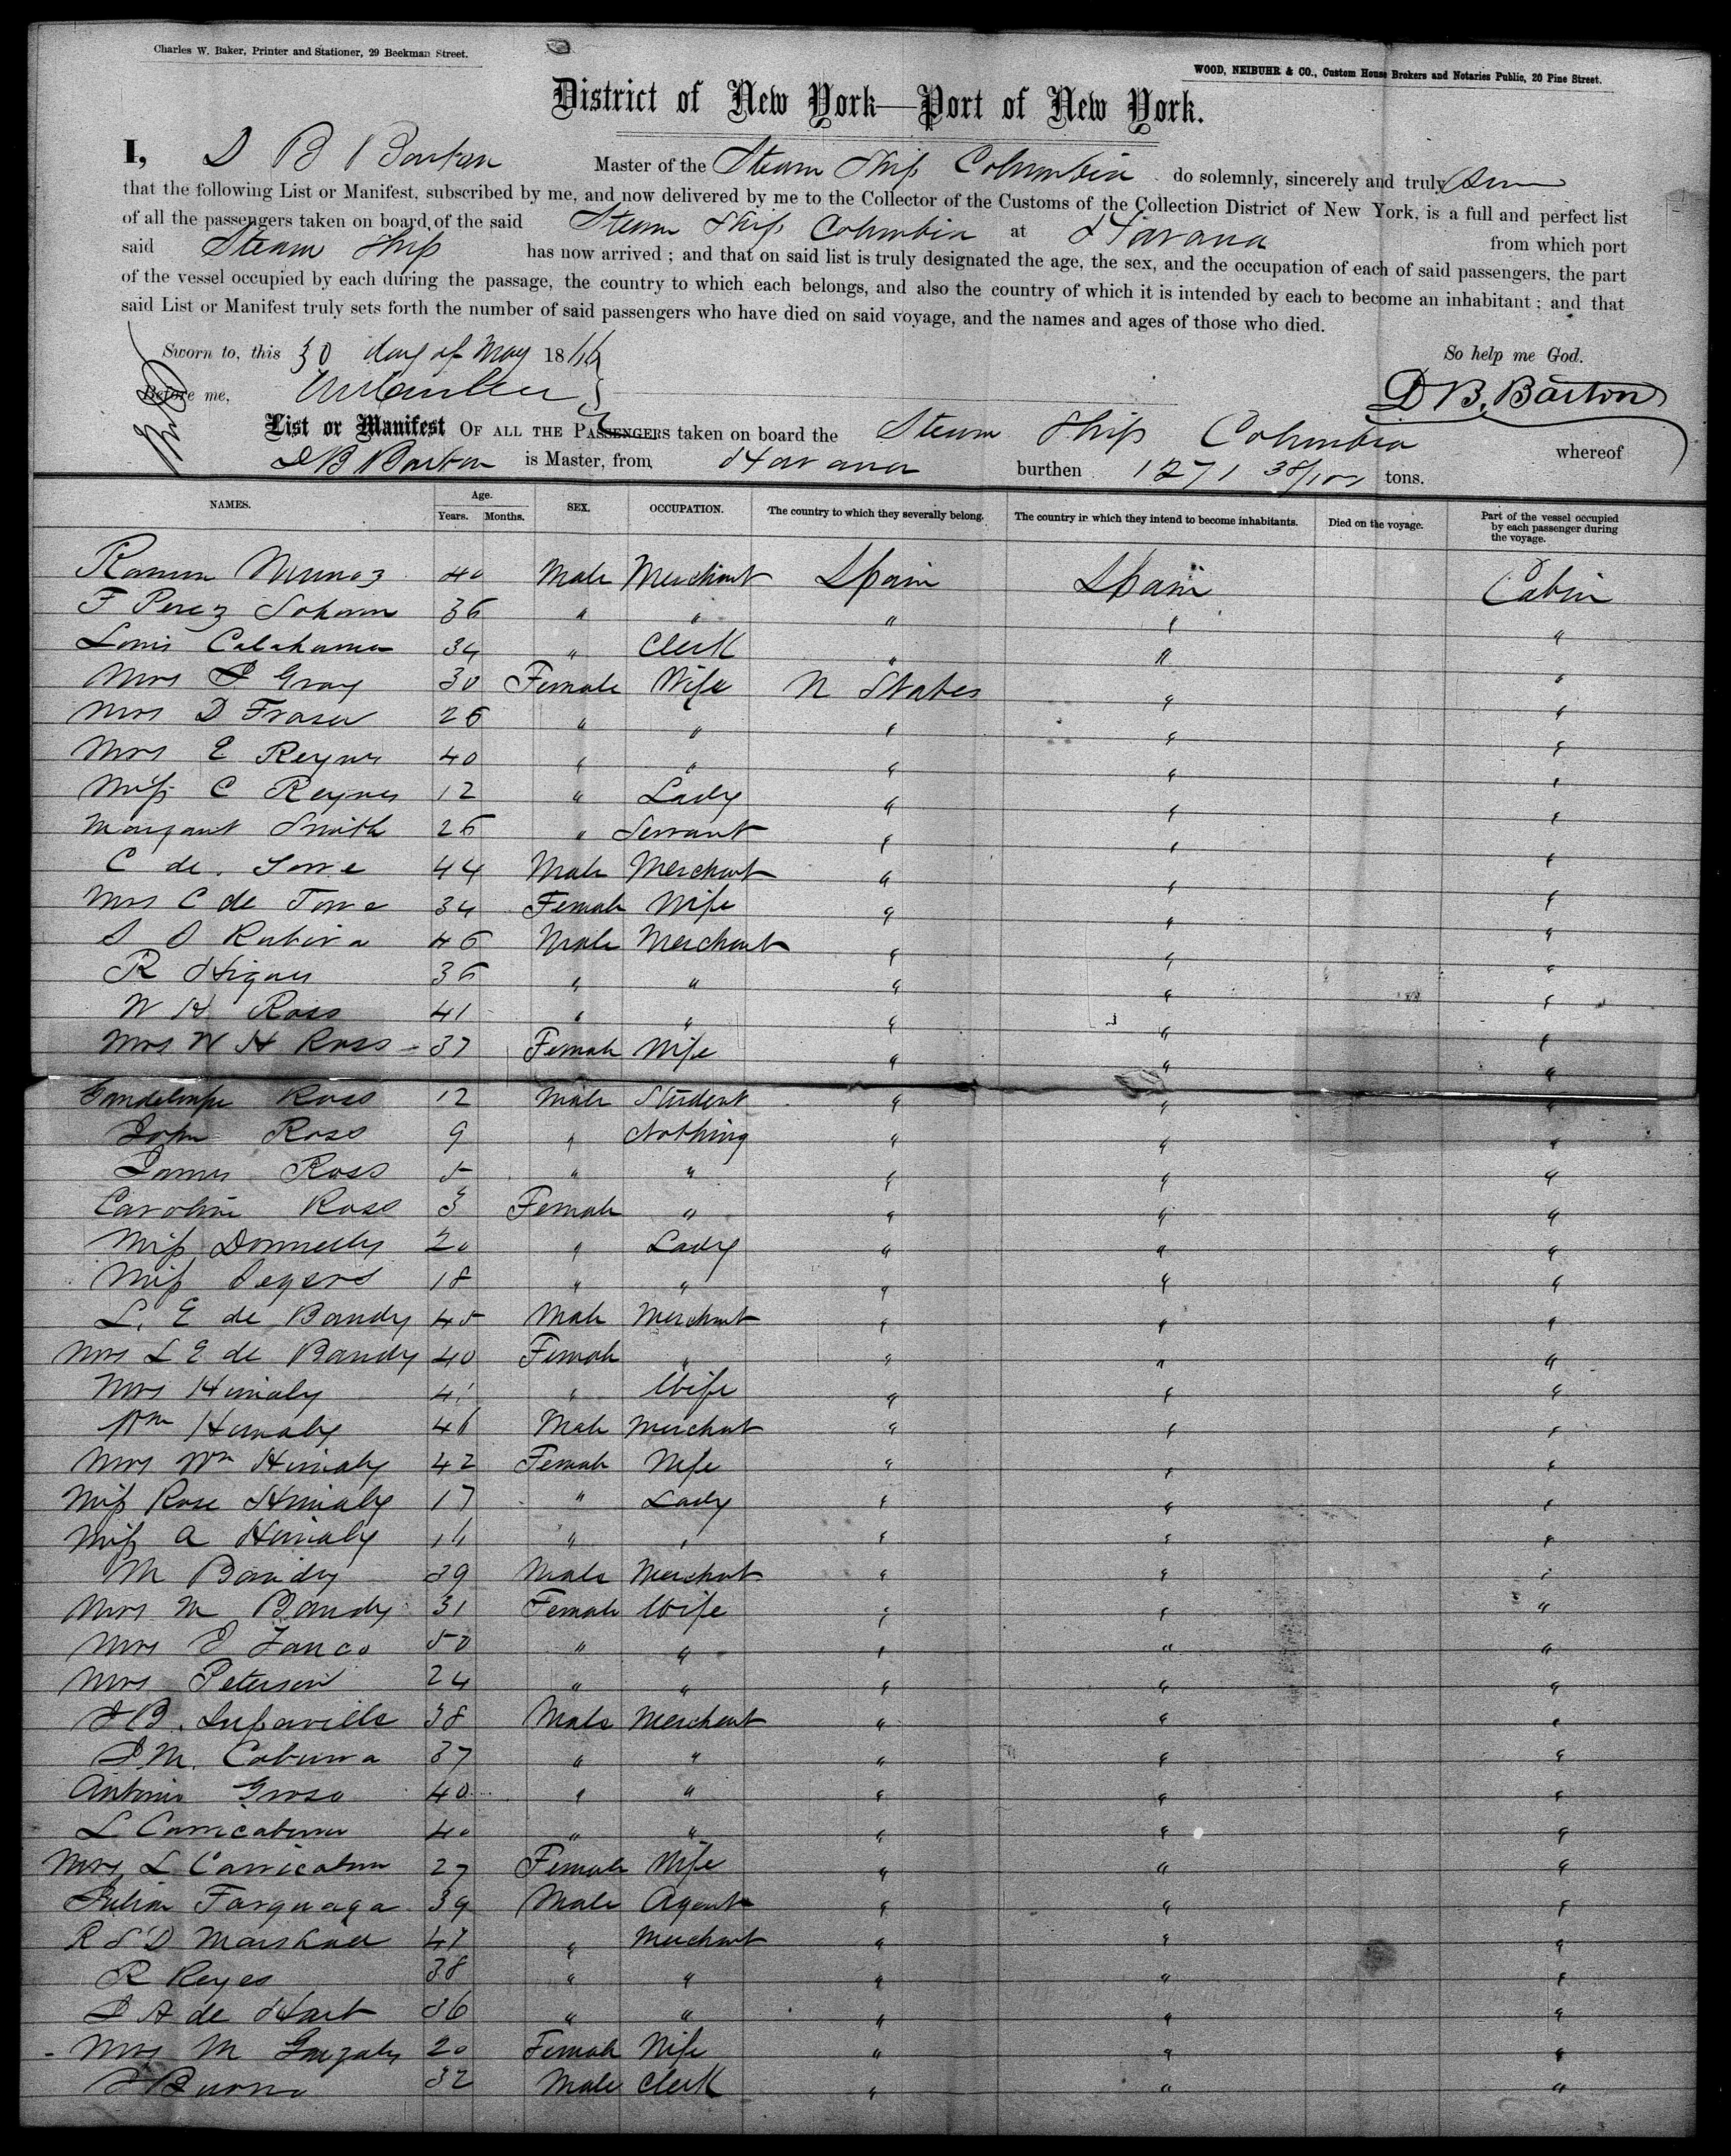 Charles W. Baker, Printer and Stationer, 29 Beekman Street.
WOOD, NEIBUHR & CO., Custom House Brokers and Notaries Public, 20 Pine Street.
District of New York—Port of New York.
I, D B Barton Master of the Steam Ship Columbia do solemnly, sincerely and truly
that the following List or Manifest, subscribed by me, and now delivered by me to the Collector of the Customs of the Collection District of New York, is a full and perfect list
of all the passengers taken on board of the said Steam Ship Columbia at Havana from which port
said Steam Ship has now arrived ; and that on said list is truly designated the age, the sex, and the occupation of each of said passengers, the part
of the vessel occupied by each during the passage, the country to which each belongs, and also the country of which it is intended by each to become an inhabitant ; and that
said List or Manifest truly sets forth the number of said passengers who have died on said voyage, and the names and ages of those who died.
Sworn to, this 30 day of May 1866 So help me God.
Before me, D B. Barton
List or Manifest OF ALL THE PASSENGERS taken on board the Steam Ship Columbia whereof
D B Barton is Master, from Havana burthen 1271 38/100 tons.
NAMES. Age. Years. Months. SEX. OCCUPATION. The country to which they severally belong. The country in which they intend to become inhabitants. Died on the voyage. Part of the vessel occupied by each passenger during the voyage.
Ramon Munoz 40 Male Merchant Spain Spain Cabin
F Perez 36 " " " " "
Louis 34 " Clerk " " "
Mrs Gray 30 Female Wife U States " "
Mrs D Fraser 26 " " " " "
Mrs E Reynes 40 " " " " "
Miss C Reynes 12 " Lady " " "
Margaret Smith 26 " Servant " " "
C de Torre 44 Male Merchant " " "
Mrs C de Torre 34 Female Wife " " "
Rubira 46 Male Merchant " " "
R 36 " " " " "
W H Ross 41 " " " " "
Mrs W H Ross 37 Female Wife " " "
Ross 12 Male Student " " "
John Ross 9 " Nothing " " "
James Ross 5 " " " " "
Caroline Ross 3 Female " " " "
Miss Donnelly 20 " Lady " " "
Miss Segers 18 " " " " "
L. E de Bandy 45 Male Merchant " " "
Mrs L E de Bandy 40 Female " " " "
Mrs Himaly 41 " Wife " " "
Wm Himaly 46 Male Merchant " " "
Mrs Wm Himaly 42 Female Wife " " "
Miss Rose Himaly 17 " Lady " " "
Miss A Himaly 16 " " " " "
M Bandy 39 Male Merchant " " "
Mrs M Bandy 31 Female Wife " " "
Mrs 50 " " " " "
Mrs Peterson 24 " " " " "
38 Male Merchant " " "
37 " " " " "
Antonio Groso 40 " " " " "
L 40 " " " " "
Mrs L 27 Female Wife " " "
Julian 39 Male Agent " " "
R S D Marshall 47 " Merchant " " "
R Reyes 38 " " " " "
A de Hart 36 " " " " "
Mrs M Gonzales 20 Female Wife " " "
32 Male Clerk " " "